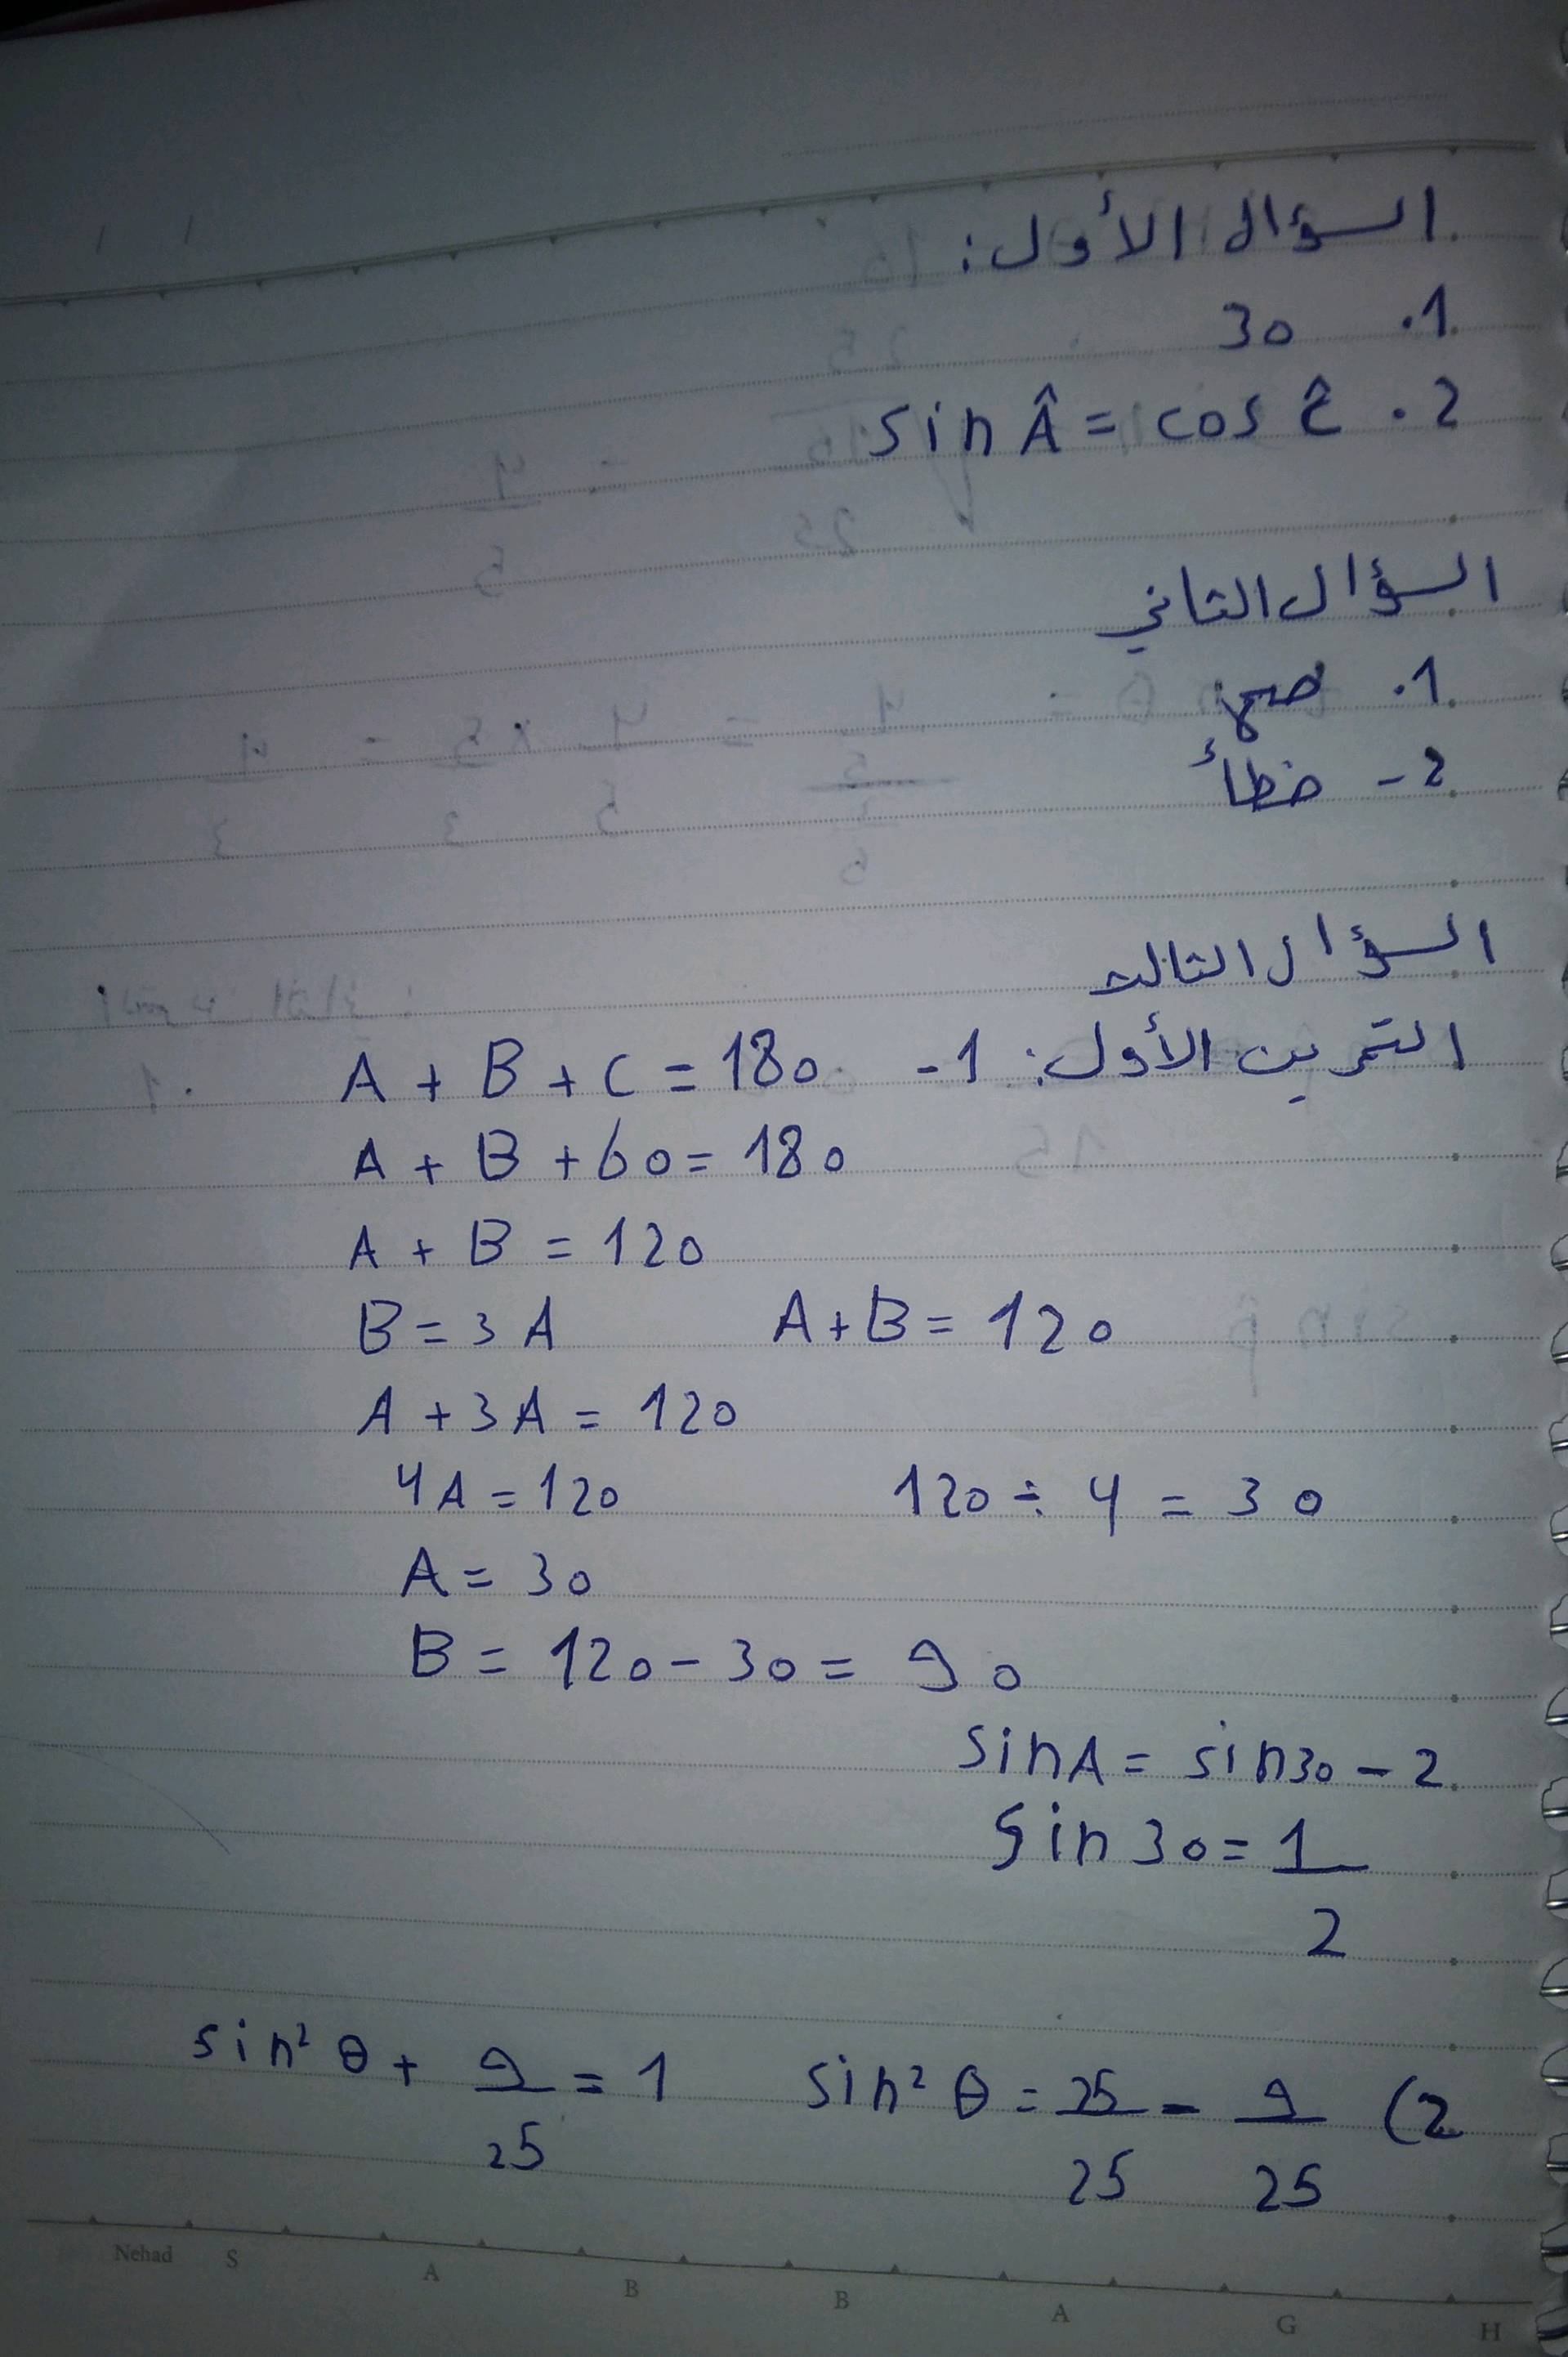 السؤال الأول:
1. 30
2. sin Â = cos Ĉ
السؤال الثاني
1. صح
2- خطأ
السؤال الثالث
التمرين الأول: 1- A + B + C = 180
A + B + 60 = 180
A + B = 120
B = 3A A + B = 120
A + 3A = 120
4A = 120 120 ÷ 4 = 30
A = 30
B = 120 - 30 = 90
2- sin A = sin 30
sin 30 = 1/2
2) sin² θ + 9/25 = 1 sin² θ = 25/25 - 9/25
Nehad S A B B A G H